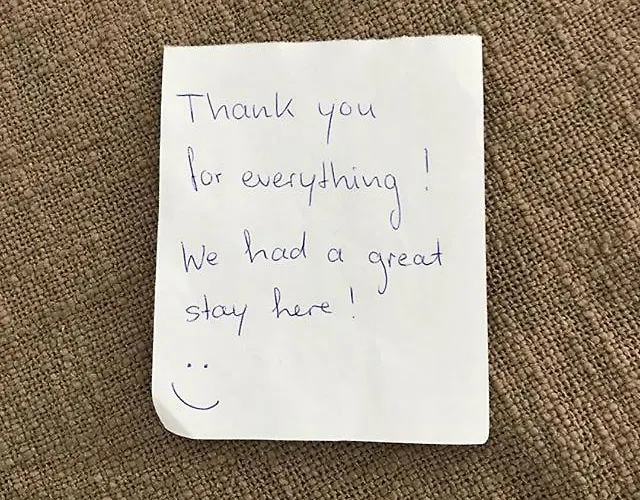 Thank you
for everything!
We had a great
stay here!